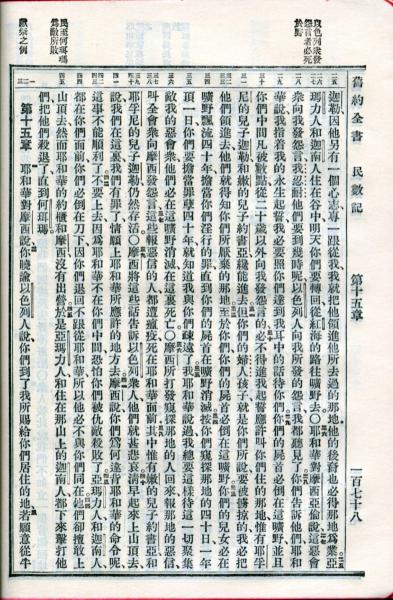 舊約全書 民數記 第十五章 一百七十八
以色列衆發
怨言者必死
於野
民至何珥瑪
爲敵所敗
獻祭之例
迦勒因他另有一個心志專一跟從我我就把他領進他所去過的那地他的後裔也必得那地爲業亞
瑪力人和迦南人住在谷中明天你們要轉回從紅海的路往曠野去〇耶和華對摩西亞倫說這惡會
衆向我發怨言我忍耐他們要到幾時呢以色列人向我所發的怨言我都聽見了你們告訴他們耶和
華說我指着我的永生起誓我必要照你們達到我耳中的話待你們你們的屍首必倒在這曠野並且
你們中間凡被數點從二十歲以外向我發怨言的必不得進我起誓應許叫你們住的那地惟有耶孚
尼的兒子迦勒和嫩的兒子約書亞纔能進去但你們的婦人孩子就是你們所說要被擄掠的我必把
他們領進去他們就得知你們所厭棄的那地至於你們你們的屍首必倒在這曠野你們的兒女必在
曠野飄流四十年擔當你們淫行的罪直到你們的屍首在曠野消滅按你們窺探那地的四十日一年
頂一日你們要擔當罪孽四十年就知道我與你們疎遠了我耶和華說過我總要這樣待這一切聚集
敵我的惡會衆他們必在這曠野消滅在這裏死亡〇摩西所打發窺探那地的人回來報那地的惡信
叫全會衆向摩西發怨言這些報惡信的人都遭瘟疫死在耶和華面前其中惟有嫩的兒子約書亞和
耶孚尼的兒子迦勒仍然存活〇摩西將這些話告訴以色列衆人他們就甚悲哀清早起來上山頂去
說我們在這裏我們有罪了情願上耶和華所應許的地方去摩西說你們爲何違背耶和華的命令呢
這事不能順利了不要上去因爲耶和華不在你們中間恐怕你們被仇敵殺敗了亞瑪力人和迦南人
都在你們面前你們必倒在刀下因你們退回不跟從耶和華所以他必不與你們同在他們卻擅敢上
山頂去然而耶和華的約櫃和摩西沒有出營於是亞瑪力人和住在那山上的迦南人都下來擊打他
們把他們殺退了直到何珥瑪
第十五章 耶和華對摩西說你曉諭以色列人說你們到了我所賜給你們居住的地若願意從牛